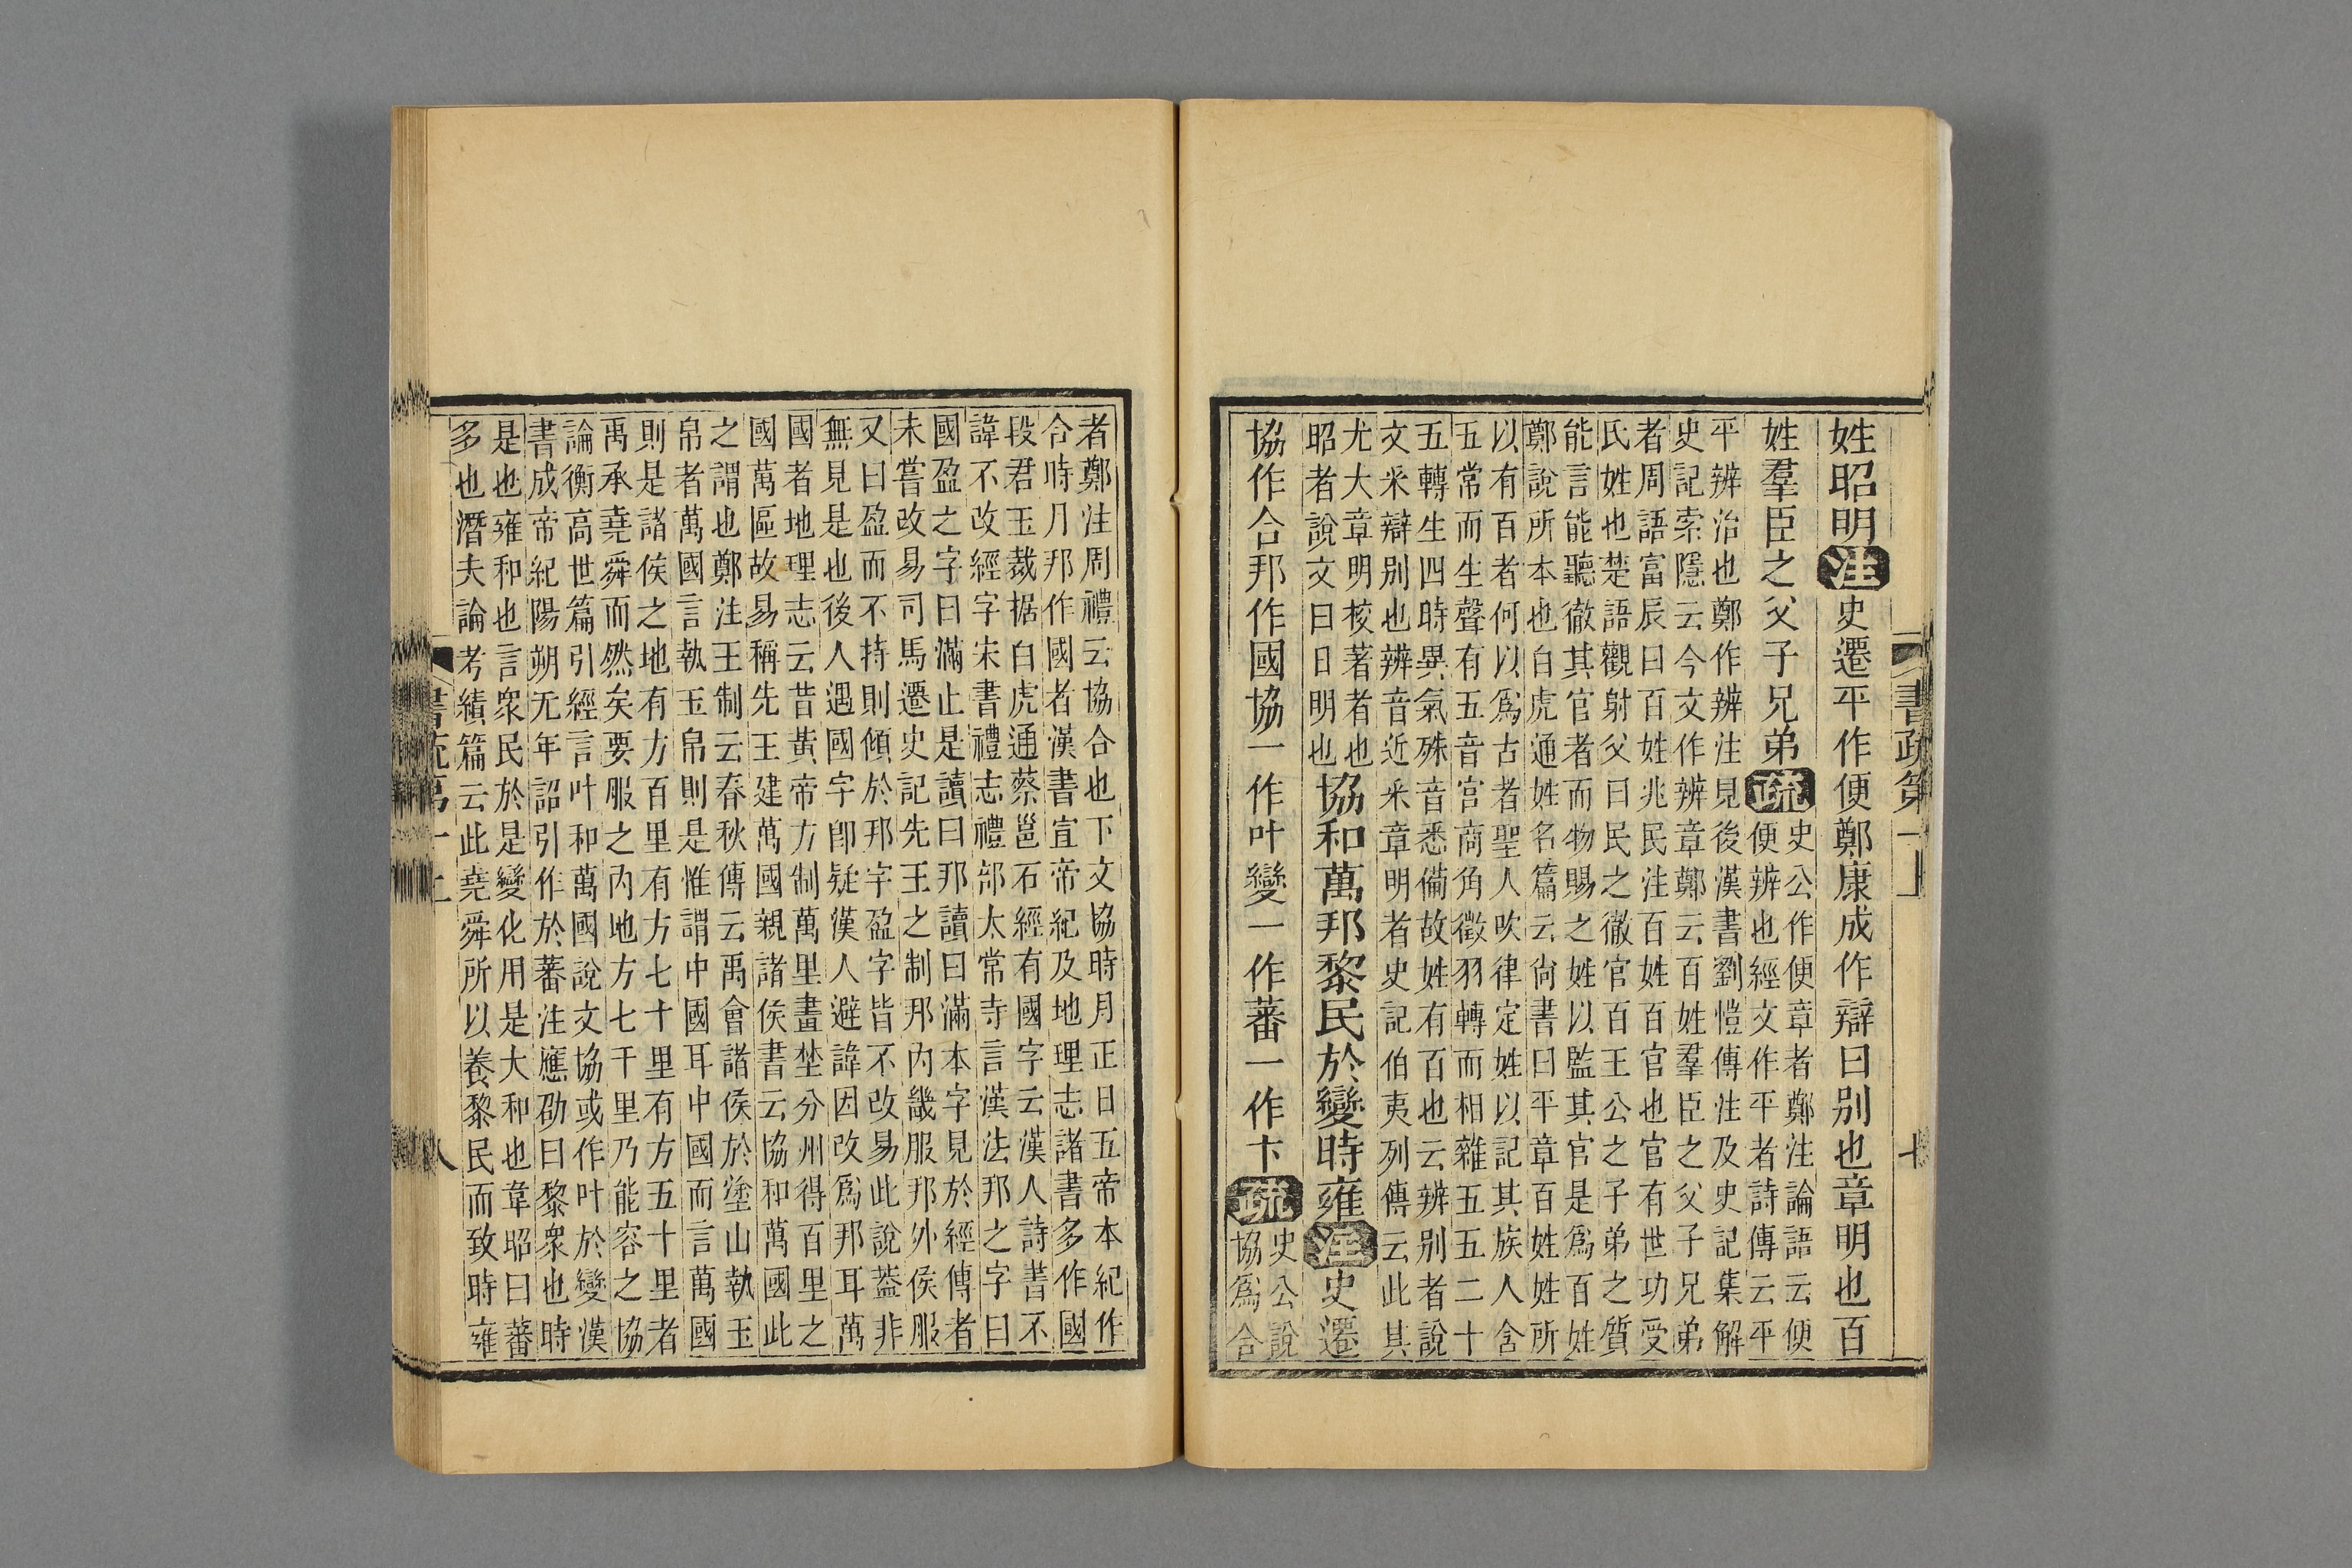 書疏第一上
七
姓昭明注史遷平作便鄭康成作辯曰別也章明也百
姓羣臣之父子兄弟疏史公作便章者鄭注論語云便
便辨也經文作平者詩傳云平
平辨治也鄭作辨注見後漢書劉愷傳注及史記集解
史記索隱云今文作辨章鄭云百姓羣臣之父子兄弟
者周語富辰曰百姓兆民注百姓百官也官有世功受
氏姓也楚語觀射父曰民之徹官百王公之子弟之質
能言能聽徹其官者而物賜之姓以監其官是爲百姓
鄭說所本也白虎通姓名篇云尙書曰平章百姓姓所
以有百者何以爲古者聖人吹律定姓以記其族人含
五常而生聲有五音宮商角徵羽轉而相雜五五二十
五轉生四時異氣殊音悉備故姓有百也云辨別者說
文釆辯別也辨音近釆章明者史記伯夷列傳云此其
尤大章明挍著者也
昭者說文曰日明也協和萬邦黎民於變時雍注史遷
協作合邦作國協一作叶變一作蕃一作卞疏史公說
協爲合
者鄭注周禮云協合也下文協時月正日五帝本紀作
合時月邦作國者漢書宣帝紀及地理志諸書多作國
段君玉裁据白虎通蔡邕石經有國字云漢人詩書不
諱不改經字宋書禮志禮部太常寺言漢法邦之字曰
國盈之字曰滿止是讀曰邦讀曰滿本字見於經傳者
未嘗改易司馬遷史記先王之制邦內畿服邦外侯服
又曰盈而不持則傾於邦字盈字皆不改易此說葢非
無見是也後人遇國字卽疑漢人避諱因改爲邦耳萬
國者地理志云昔黃帝方制萬里畫埜分州得百里之
國萬區故易稱先王建萬國親諸侯書云協和萬國此
之謂也鄭注王制云春秋傳云禹會諸侯於塗山執玉
帛者萬國言執玉帛則是惟謂中國耳中國而言萬國
則是諸侯之地有方百里有方七十里有方五十里者
禹承堯舜而然矣要服之內地方七千里乃能容之協
論衡高世篇引經言叶和萬國說文協或作叶於變漢
書成帝紀陽朔无年詔引作於蕃注應劭曰黎衆也時
是也雍和也言衆民於是變化用是大和也韋昭曰蕃
多也潛夫論考績篇云此堯舜所以養黎民而致時雍
八